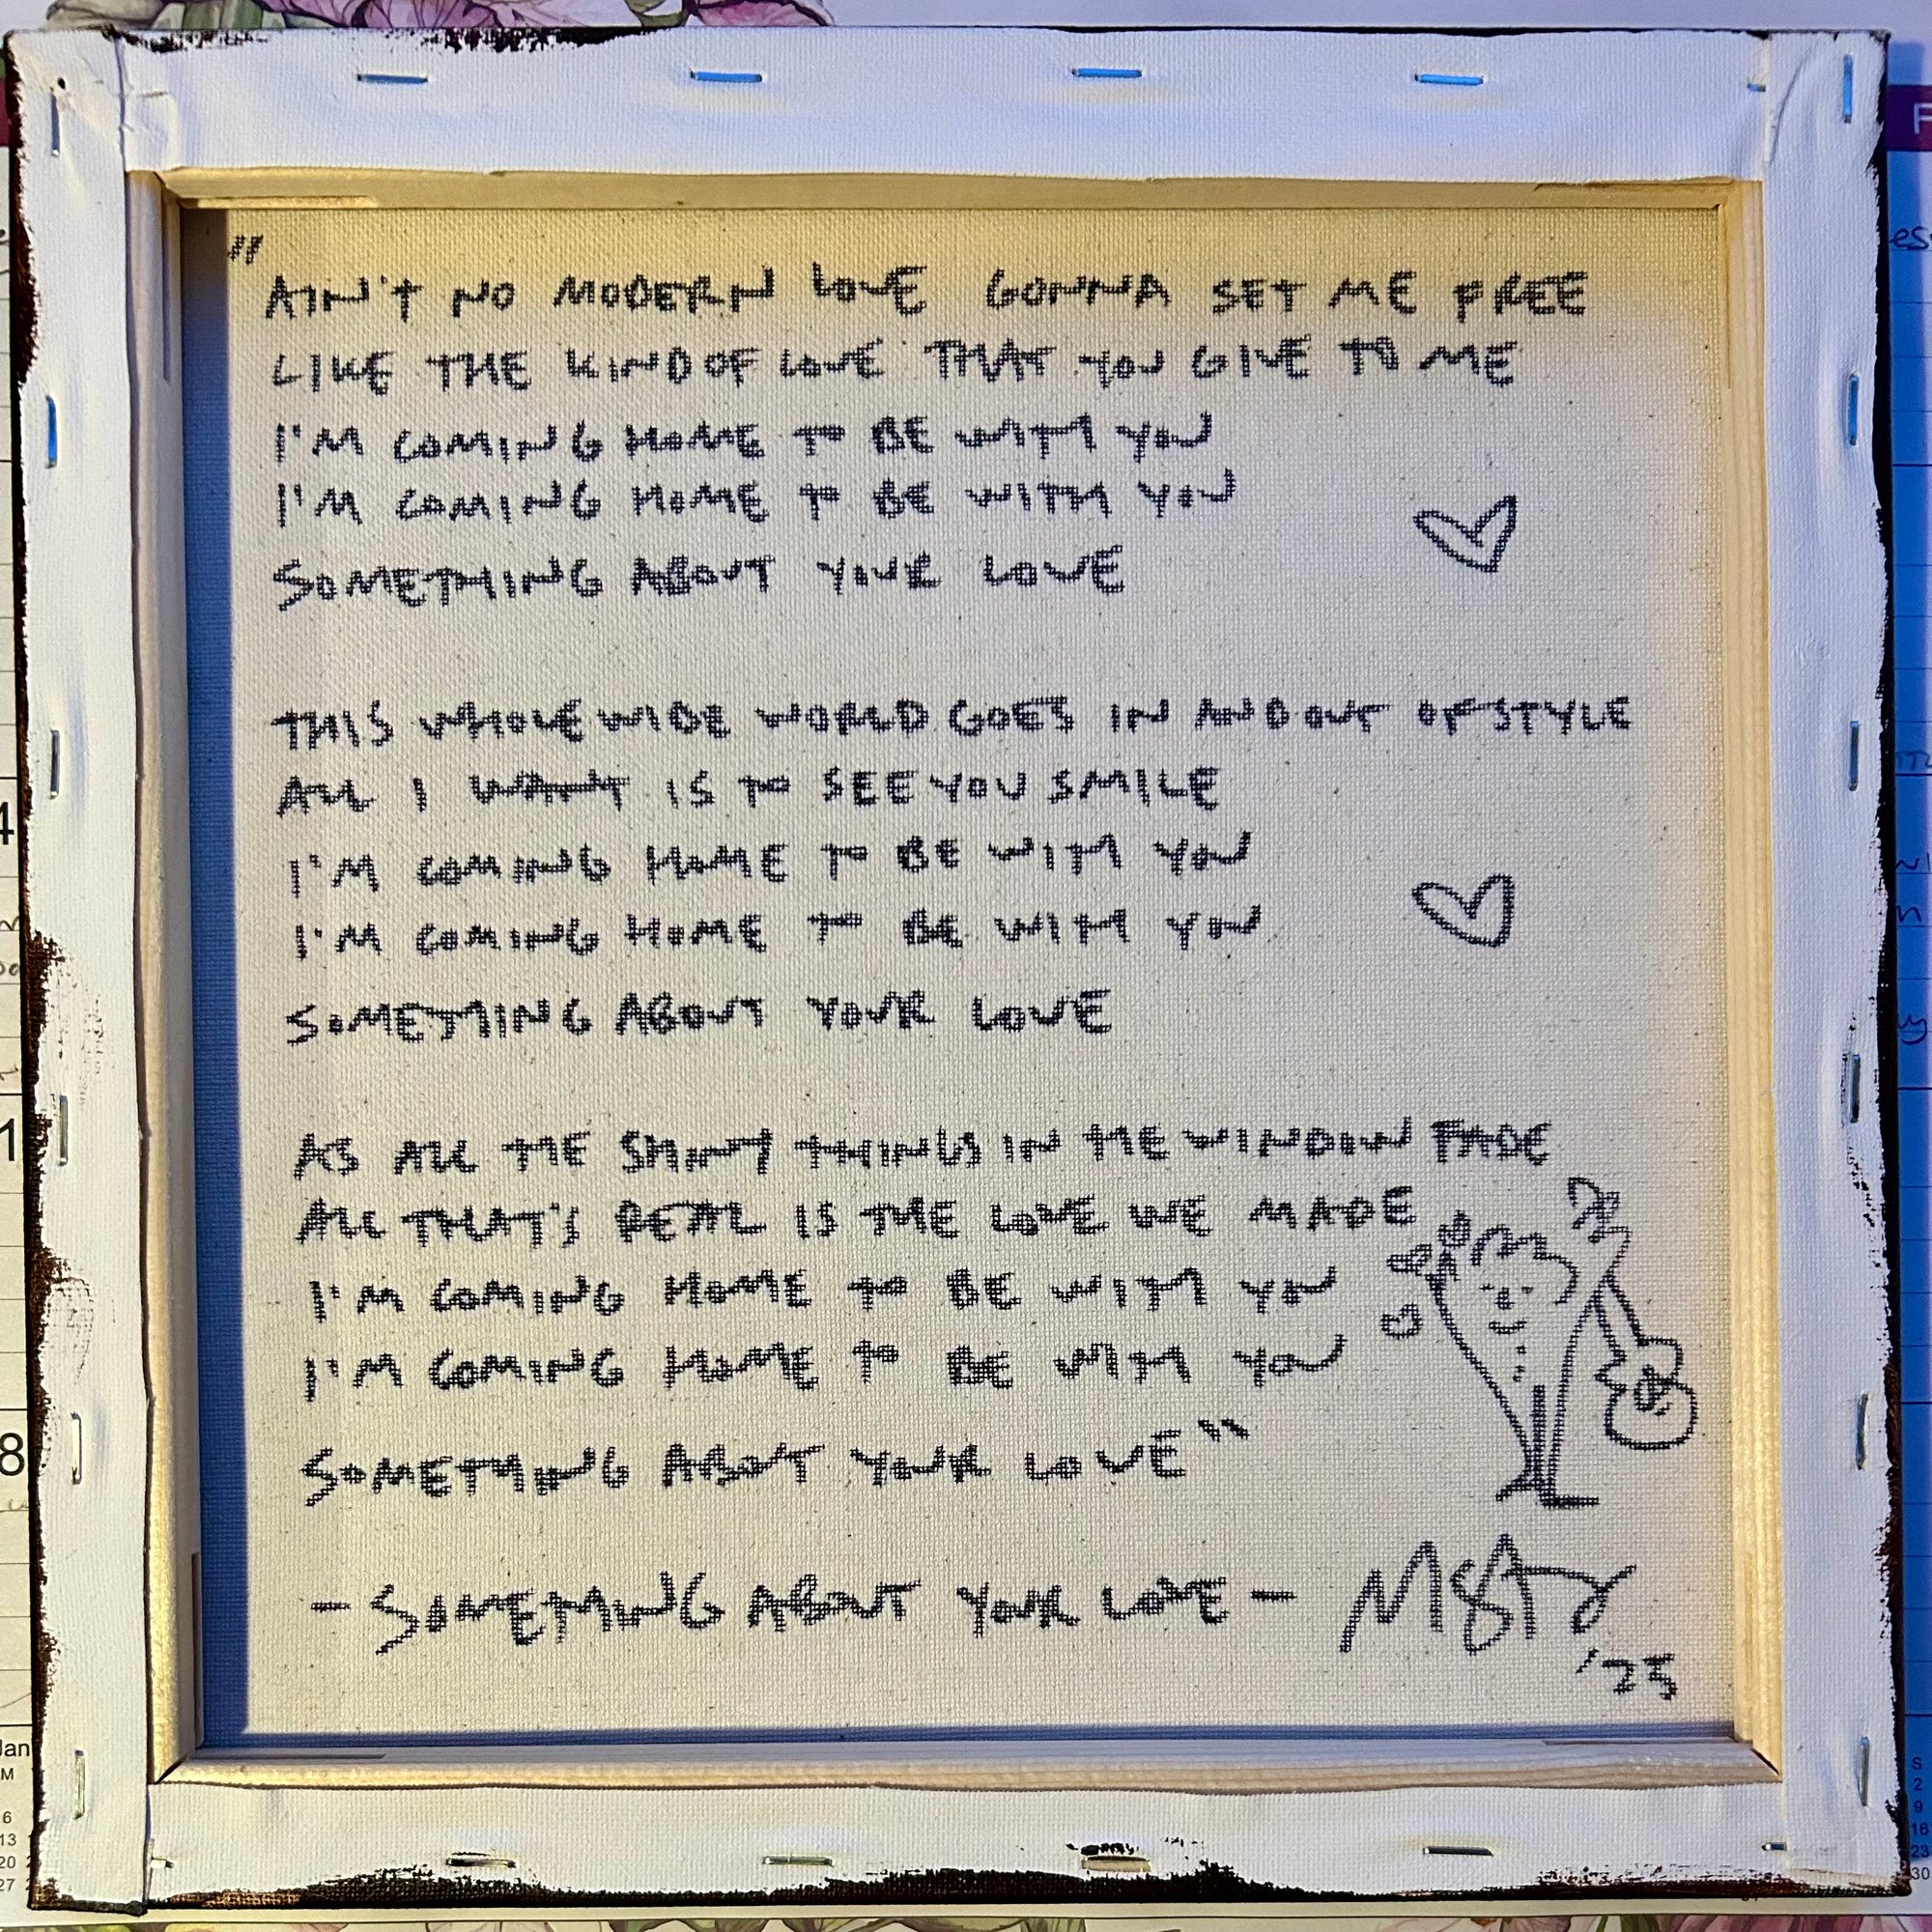 "
AIN'T NO MODERN LOVE GONNA SET ME FREE
LIKE THE KIND OF LOVE THAT YOU GIVE TO ME
I'M COMING HOME TO BE WITH YOU
I'M COMING HOME TO BE WITH YOU
SOMETHING ABOUT YOUR LOVE
THIS WHOLE WIDE WORLD GOES IN AND OUT OF STYLE
ALL I WANT IS TO SEE YOU SMILE
I'M COMING HOME TO BE WITH YOU
I'M COMING HOME TO BE WITH YOU
SOMETHING ABOUT YOUR LOVE
AS ALL THE SHINY THINGS IN THE WINDOW FADE
ALL THAT'S REAL IS THE LOVE WE MADE
I'M COMING HOME TO BE WITH YOU
I'M COMING HOME TO BE WITH YOU
SOMETHING ABOUT YOUR LOVE"
- SOMETHING ABOUT YOUR LOVE -
'25
4
1
8
Jan
M
6
13
20
27
S
2
9
16
23
30